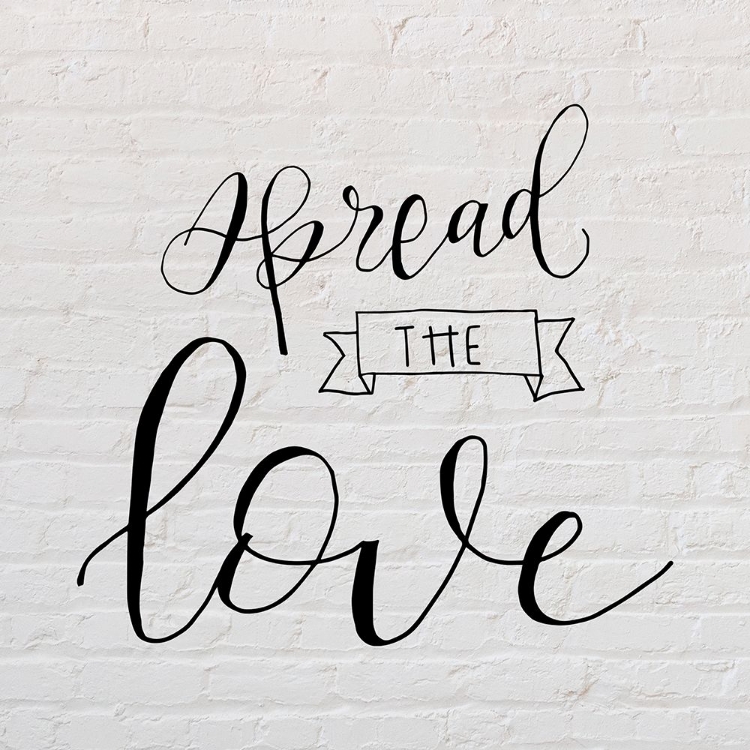 spread
THE
love